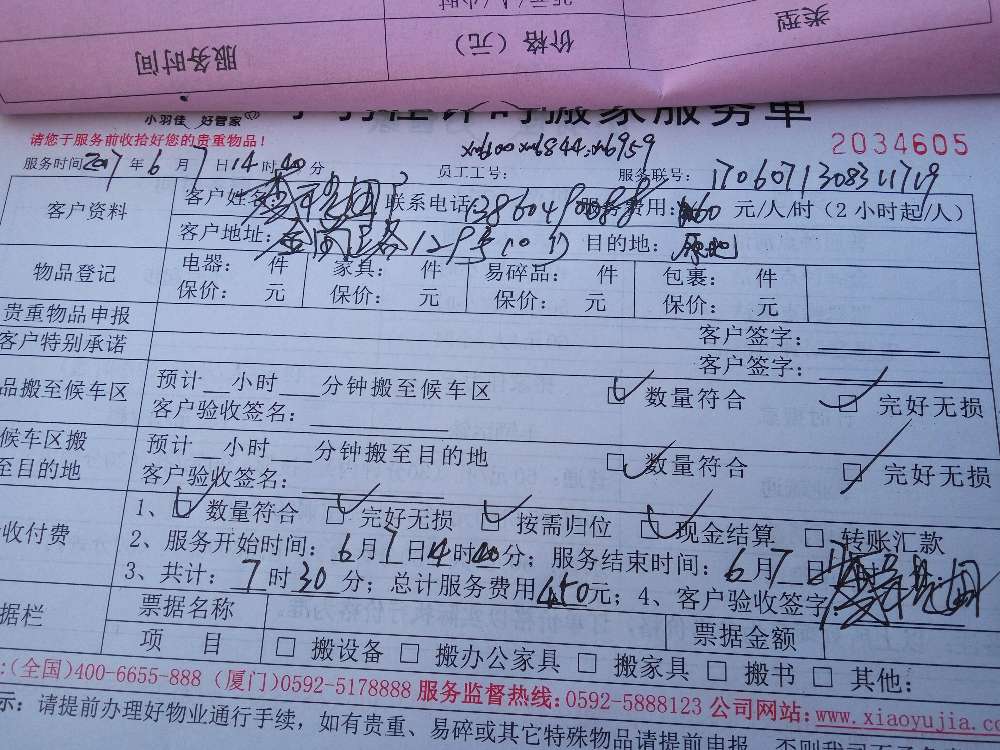 类型
价格（元）
服务时间
小羽佳 好管家®
搬家服务单
请您于服务前收拾好您的贵重物品！
2034605
服务时间2017年6月7日14时40分 员工工号： 服务联号：
客户资料
客户姓名： 联系电话： 服务费用：60元/人/时（2小时起/人）
客户地址： 129号 目的地：原地
物品登记
电器： 件 家具： 件 易碎品： 件 包裹： 件
保价： 元 保价： 元 保价： 元 保价： 元
贵重物品申报 客户签字：
客户特别承诺 客户签字：
品搬至候车区
预计 小时 分钟搬至候车区 数量符合 完好无损
客户验收签名：
候车区搬
至目的地
预计 小时 分钟搬至目的地 数量符合 完好无损
客户验收签名：
收付费
1、 数量符合 完好无损 按需归位 现金结算 转账汇款
2、服务开始时间：6月7日14时40分；服务结束时间：6月7日
3、共计：7时30分；总计服务费用450元；4、客户验收签字：
据栏
票据名称 票据金额
项 目 搬设备 搬办公家具 搬家具 搬书 其他：
:(全国)400-6655-888 (厦门)0592-5178888 服务监督热线:0592-5888123 公司网站:www.xiaoyujia.co
示：请提前办理好物业通行手续，如有贵重、易碎或其它特殊物品请提前申报，否则我司